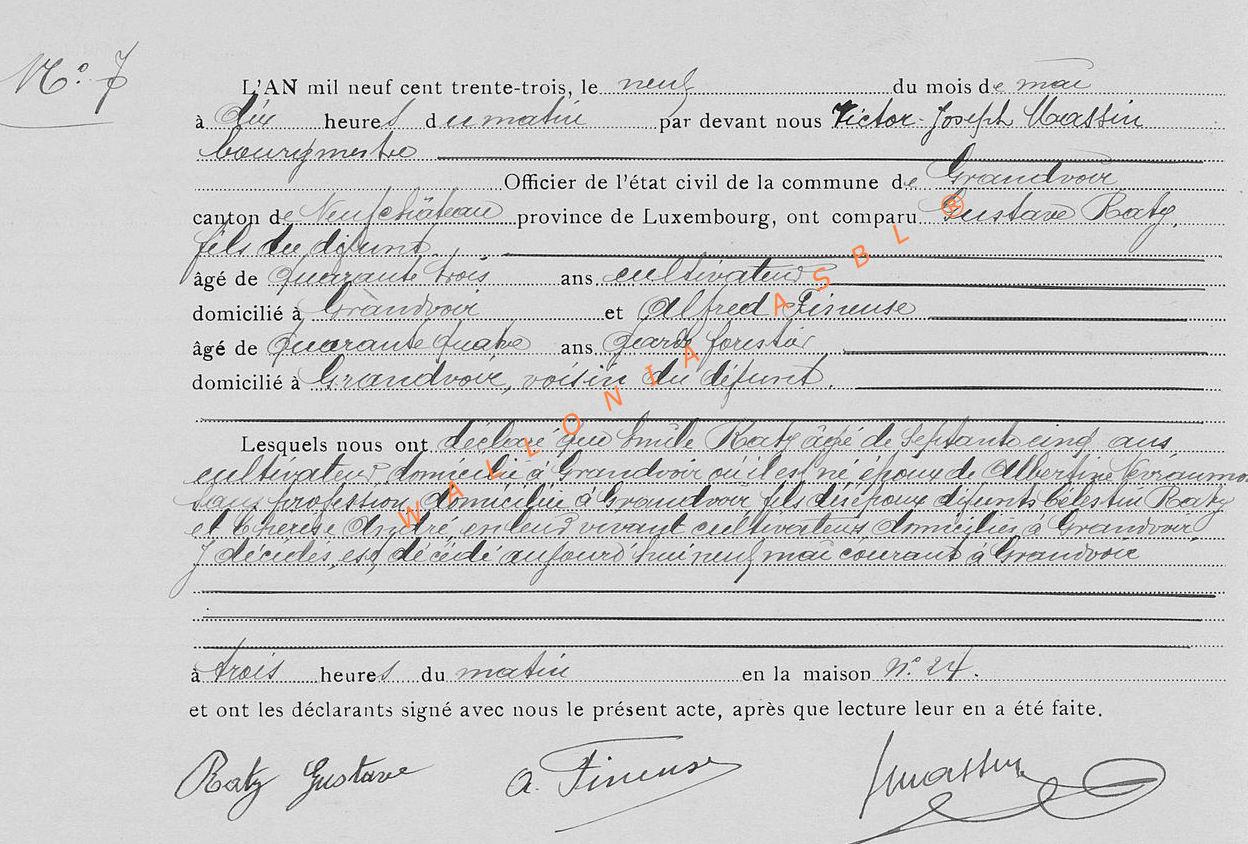 N° 7
L'AN mil neuf cent trente-trois, le neuf du mois de mai
à dix heures du matin par devant nous Victor-Joseph Massin
bourgmestre
Officier de l'état civil de la commune de Grandvoir
canton de Neufchâteau province de Luxembourg, ont comparu Gustave Raty,
fils du défunt
âgé de quarante trois ans cultivateur
domicilié à Grandvoir et Alfred Fineuse
âgé de quarante quatre ans garde forestier
domicilié à Grandvoir, voisin du défunt.
Lesquels nous ont déclaré que Emile Raty âgé de septante cinq ans
cultivateur, domicilié à Grandvoir où il est né époux de Albertine
sans profession, domiciliée à Grandvoir fils des époux défunts Celestin Raty
et Thérèse André, en leur vivant cultivateurs domiciliés à Grandvoir
y décédés, est décédé aujourd'hui neuf mai courant à Grandvoir
à trois heures du matin en la maison n° 24.
et ont les déclarants signé avec nous le présent acte, après que lecture leur en a été faite.
Raty Gustave A. Fineuse Massin
WALLONIA ASBL ®